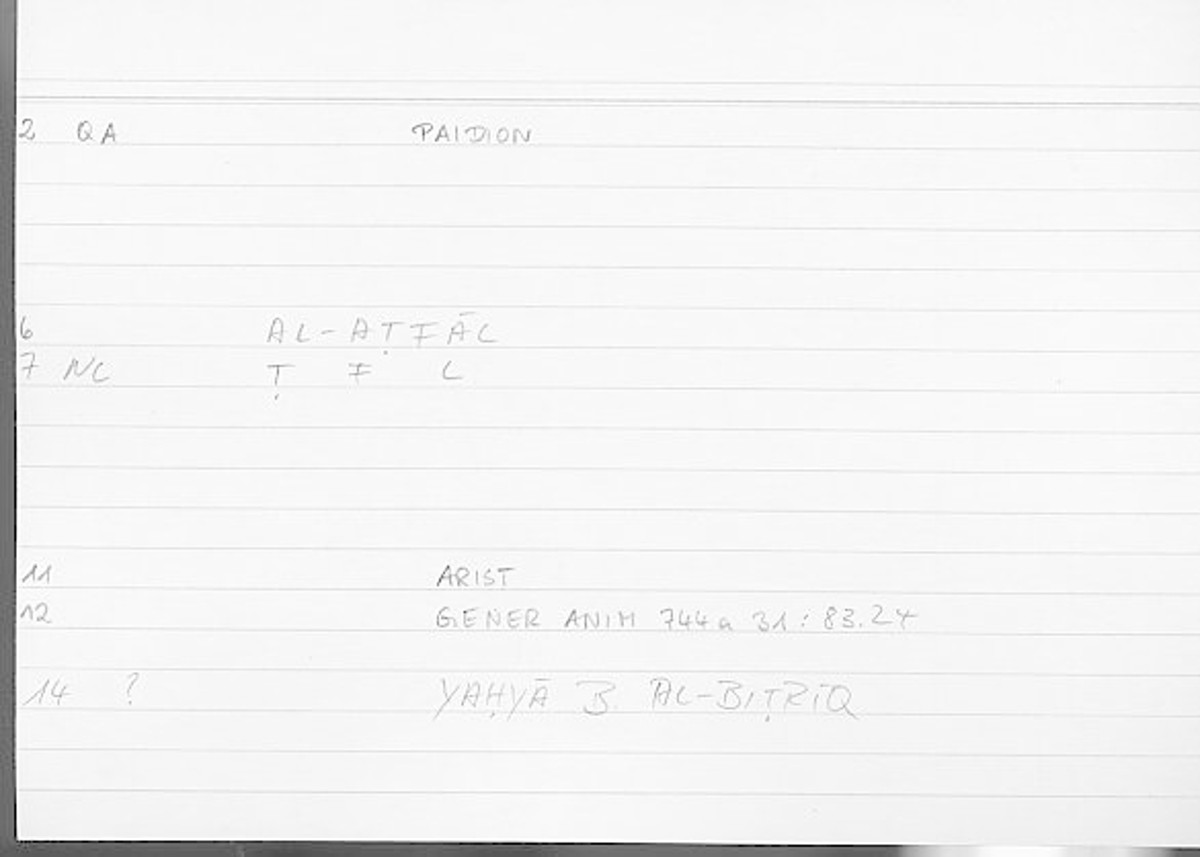 2 QA PAIDION
6 AL-AṬFĀL
7 NC Ṭ F L
11 ARIST
12 GENER ANIM 744a 31 : 83.24
14 ? YAḤYĀ B AL-BIṬRĪQ